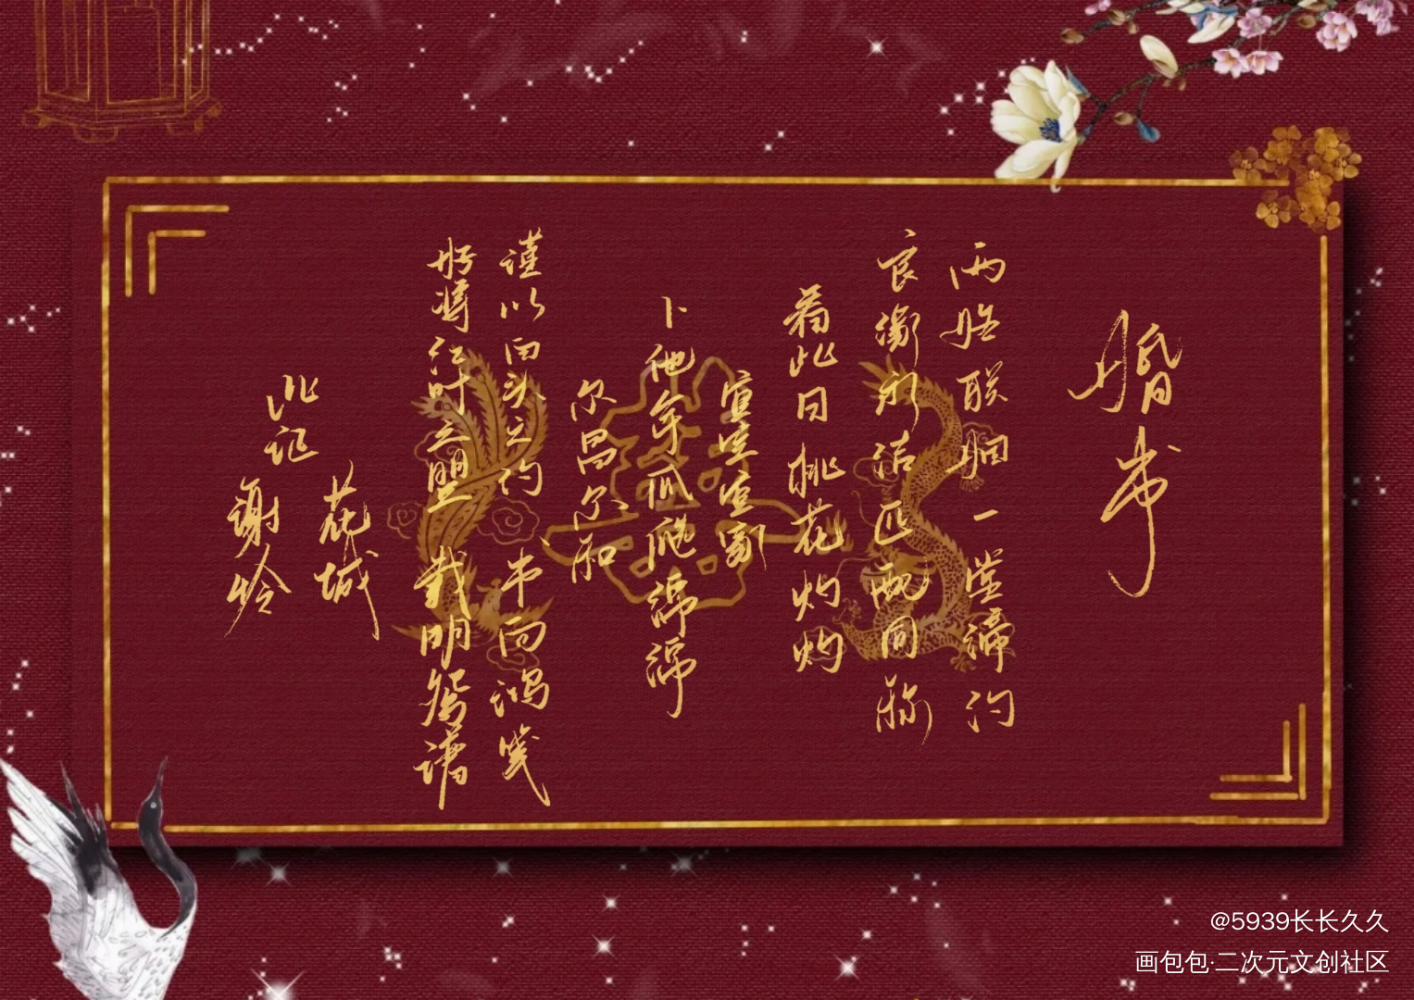 婚书
两姓联姻一堂缔约
良缘永结匹配同称
看此日桃花灼灼
宜室宜家
卜他年瓜瓞绵绵
尔昌尔炽
谨以白头之约 书向鸿笺
好将红叶之盟 载明鸳谱
此证
花城
谢怜
@5939长长久久
画包包·二次元文创社区